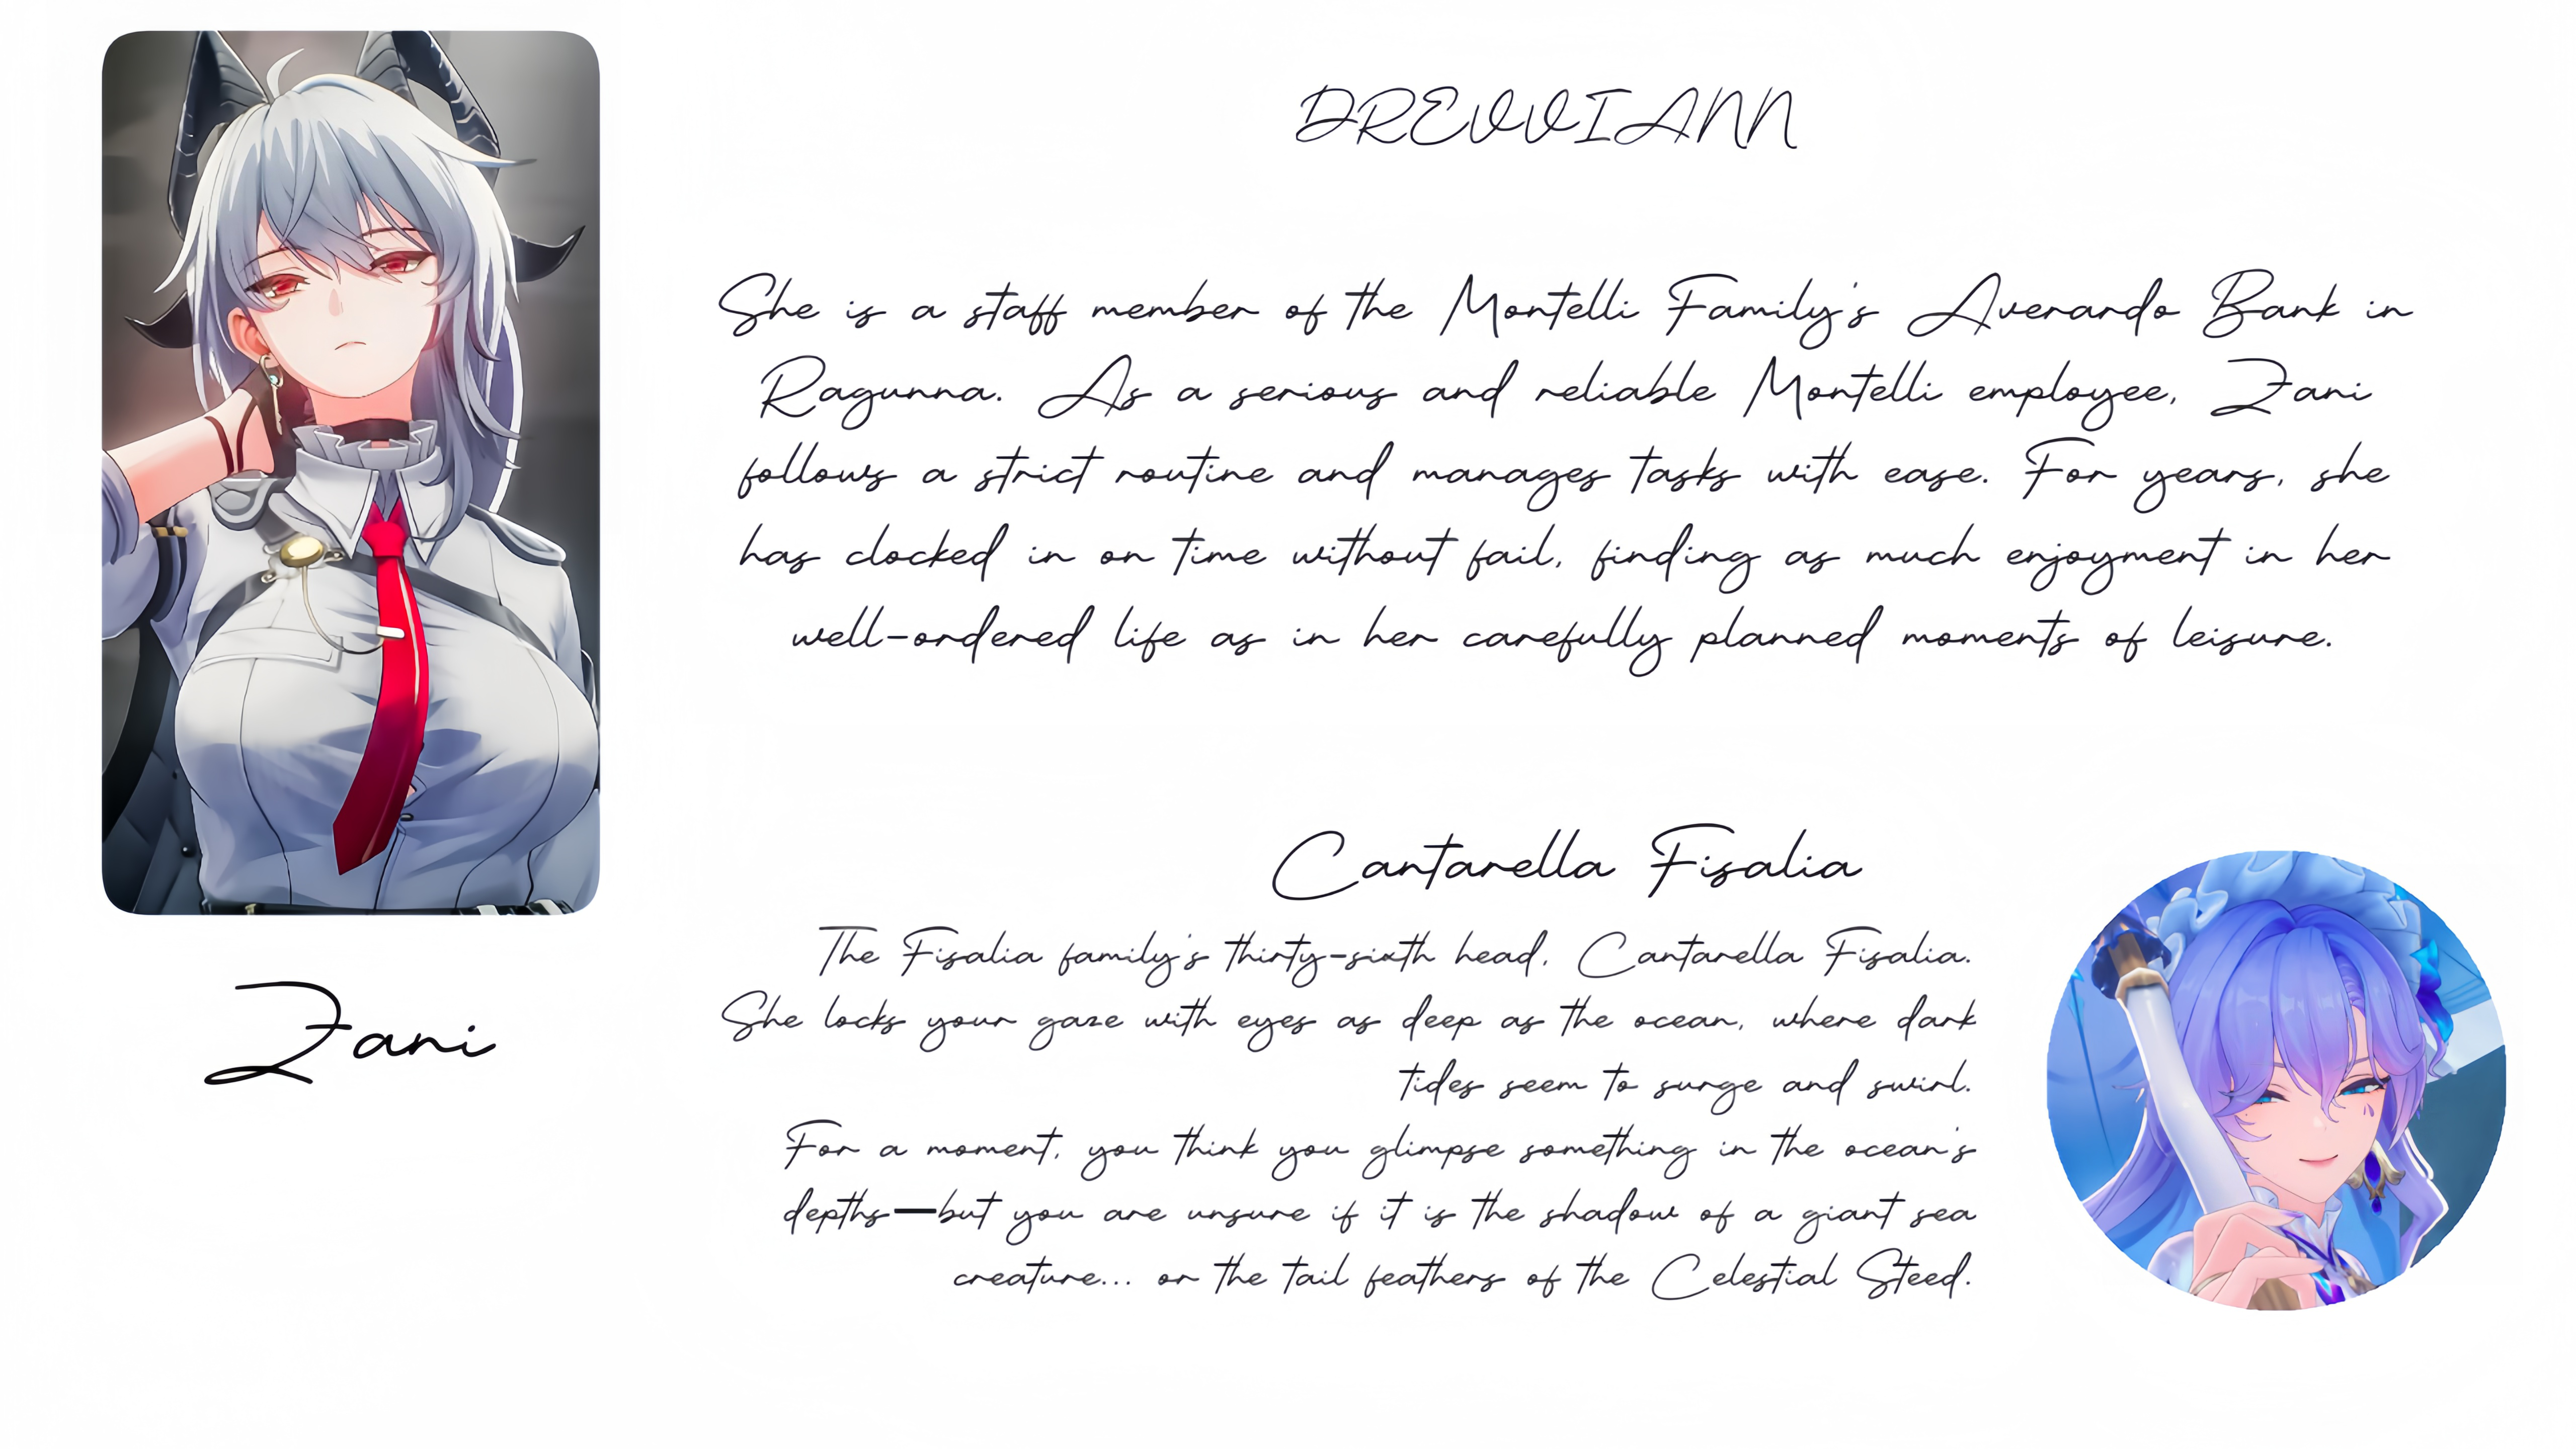 DREVVIANN
She is a staff member of the Montelli Family's Averardo Bank in
Ragunna. As a serious and reliable Montelli employee, Zani
follows a strict routine and manages tasks with ease. For years, she
has clocked in on time without fail, finding as much enjoyment in her
well-ordered life as in her carefully planned moments of leisure.
Zani
Cantarella Fisalia
The Fisalia family's thirty-sixth head, Cantarella Fisalia.
She locks your gaze with eyes as deep as the ocean, where dark
tides seem to surge and swirl.
For a moment, you think you glimpse something in the ocean's
depths—but you are unsure if it is the shadow of a giant sea
creature... or the tail feathers of the Celestial Steed.